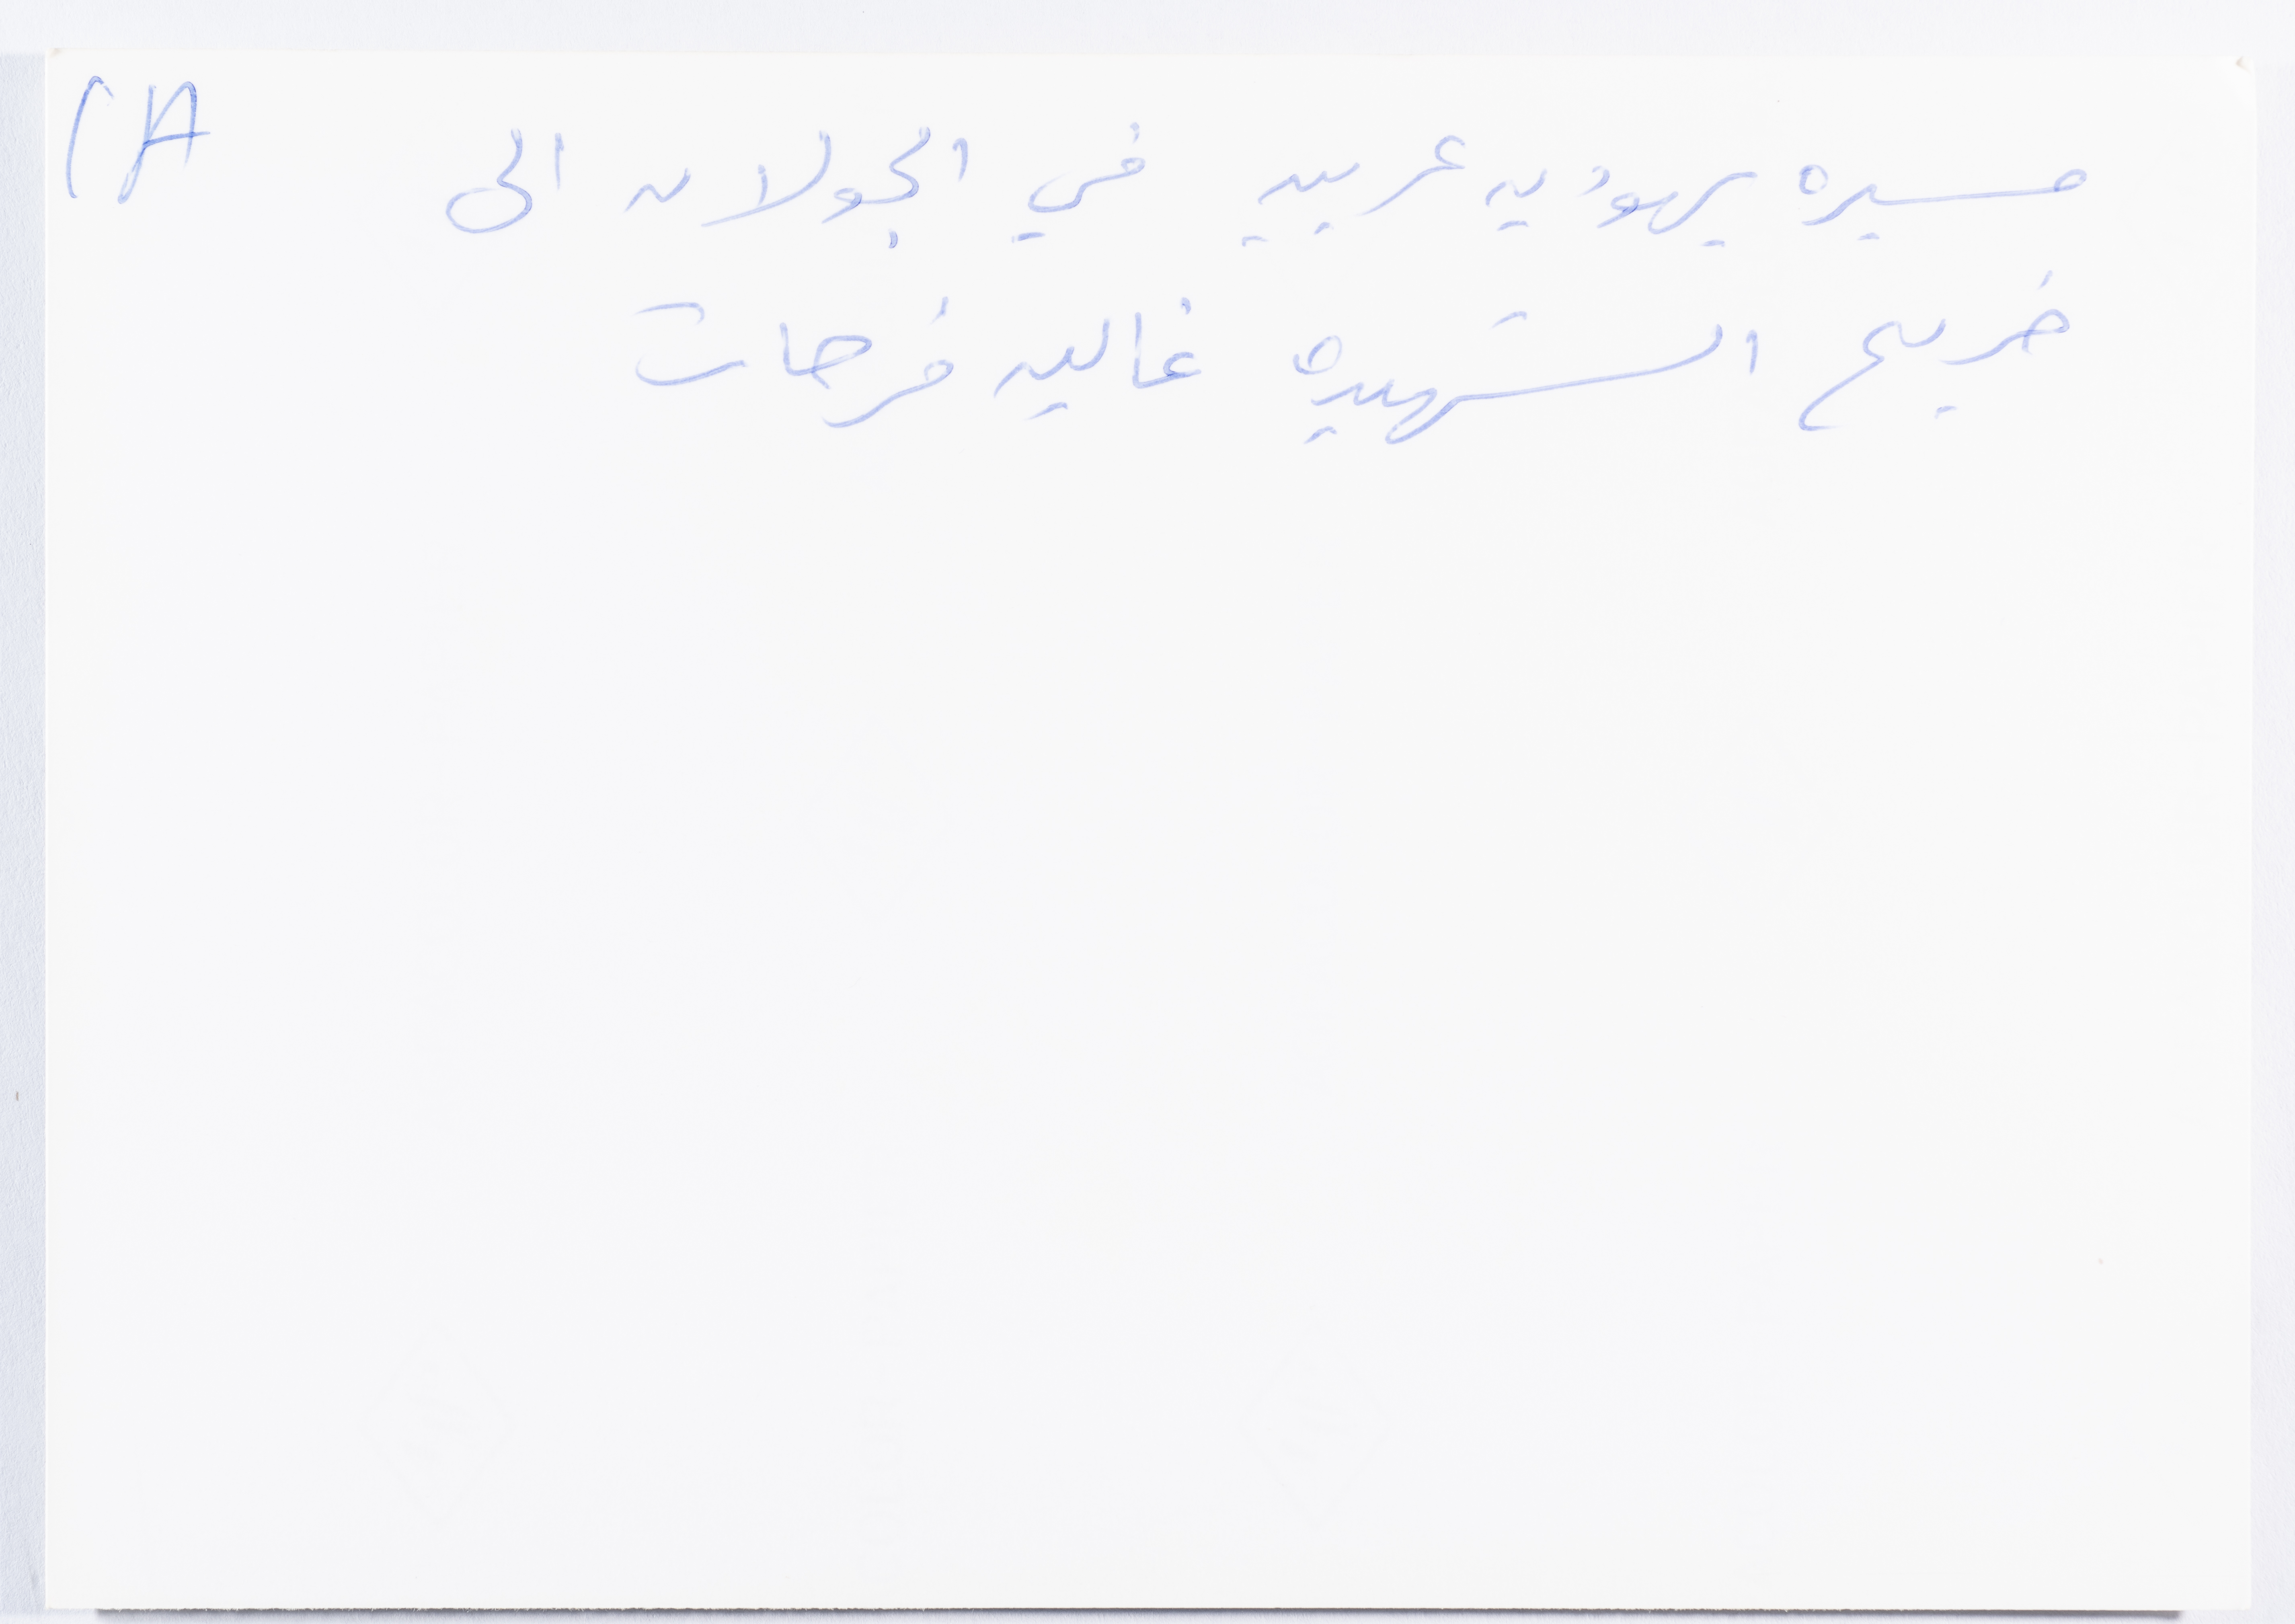 مسيره يهوديه عربيه في الجولان الى
ضريح الشهيده غاليه فرحات